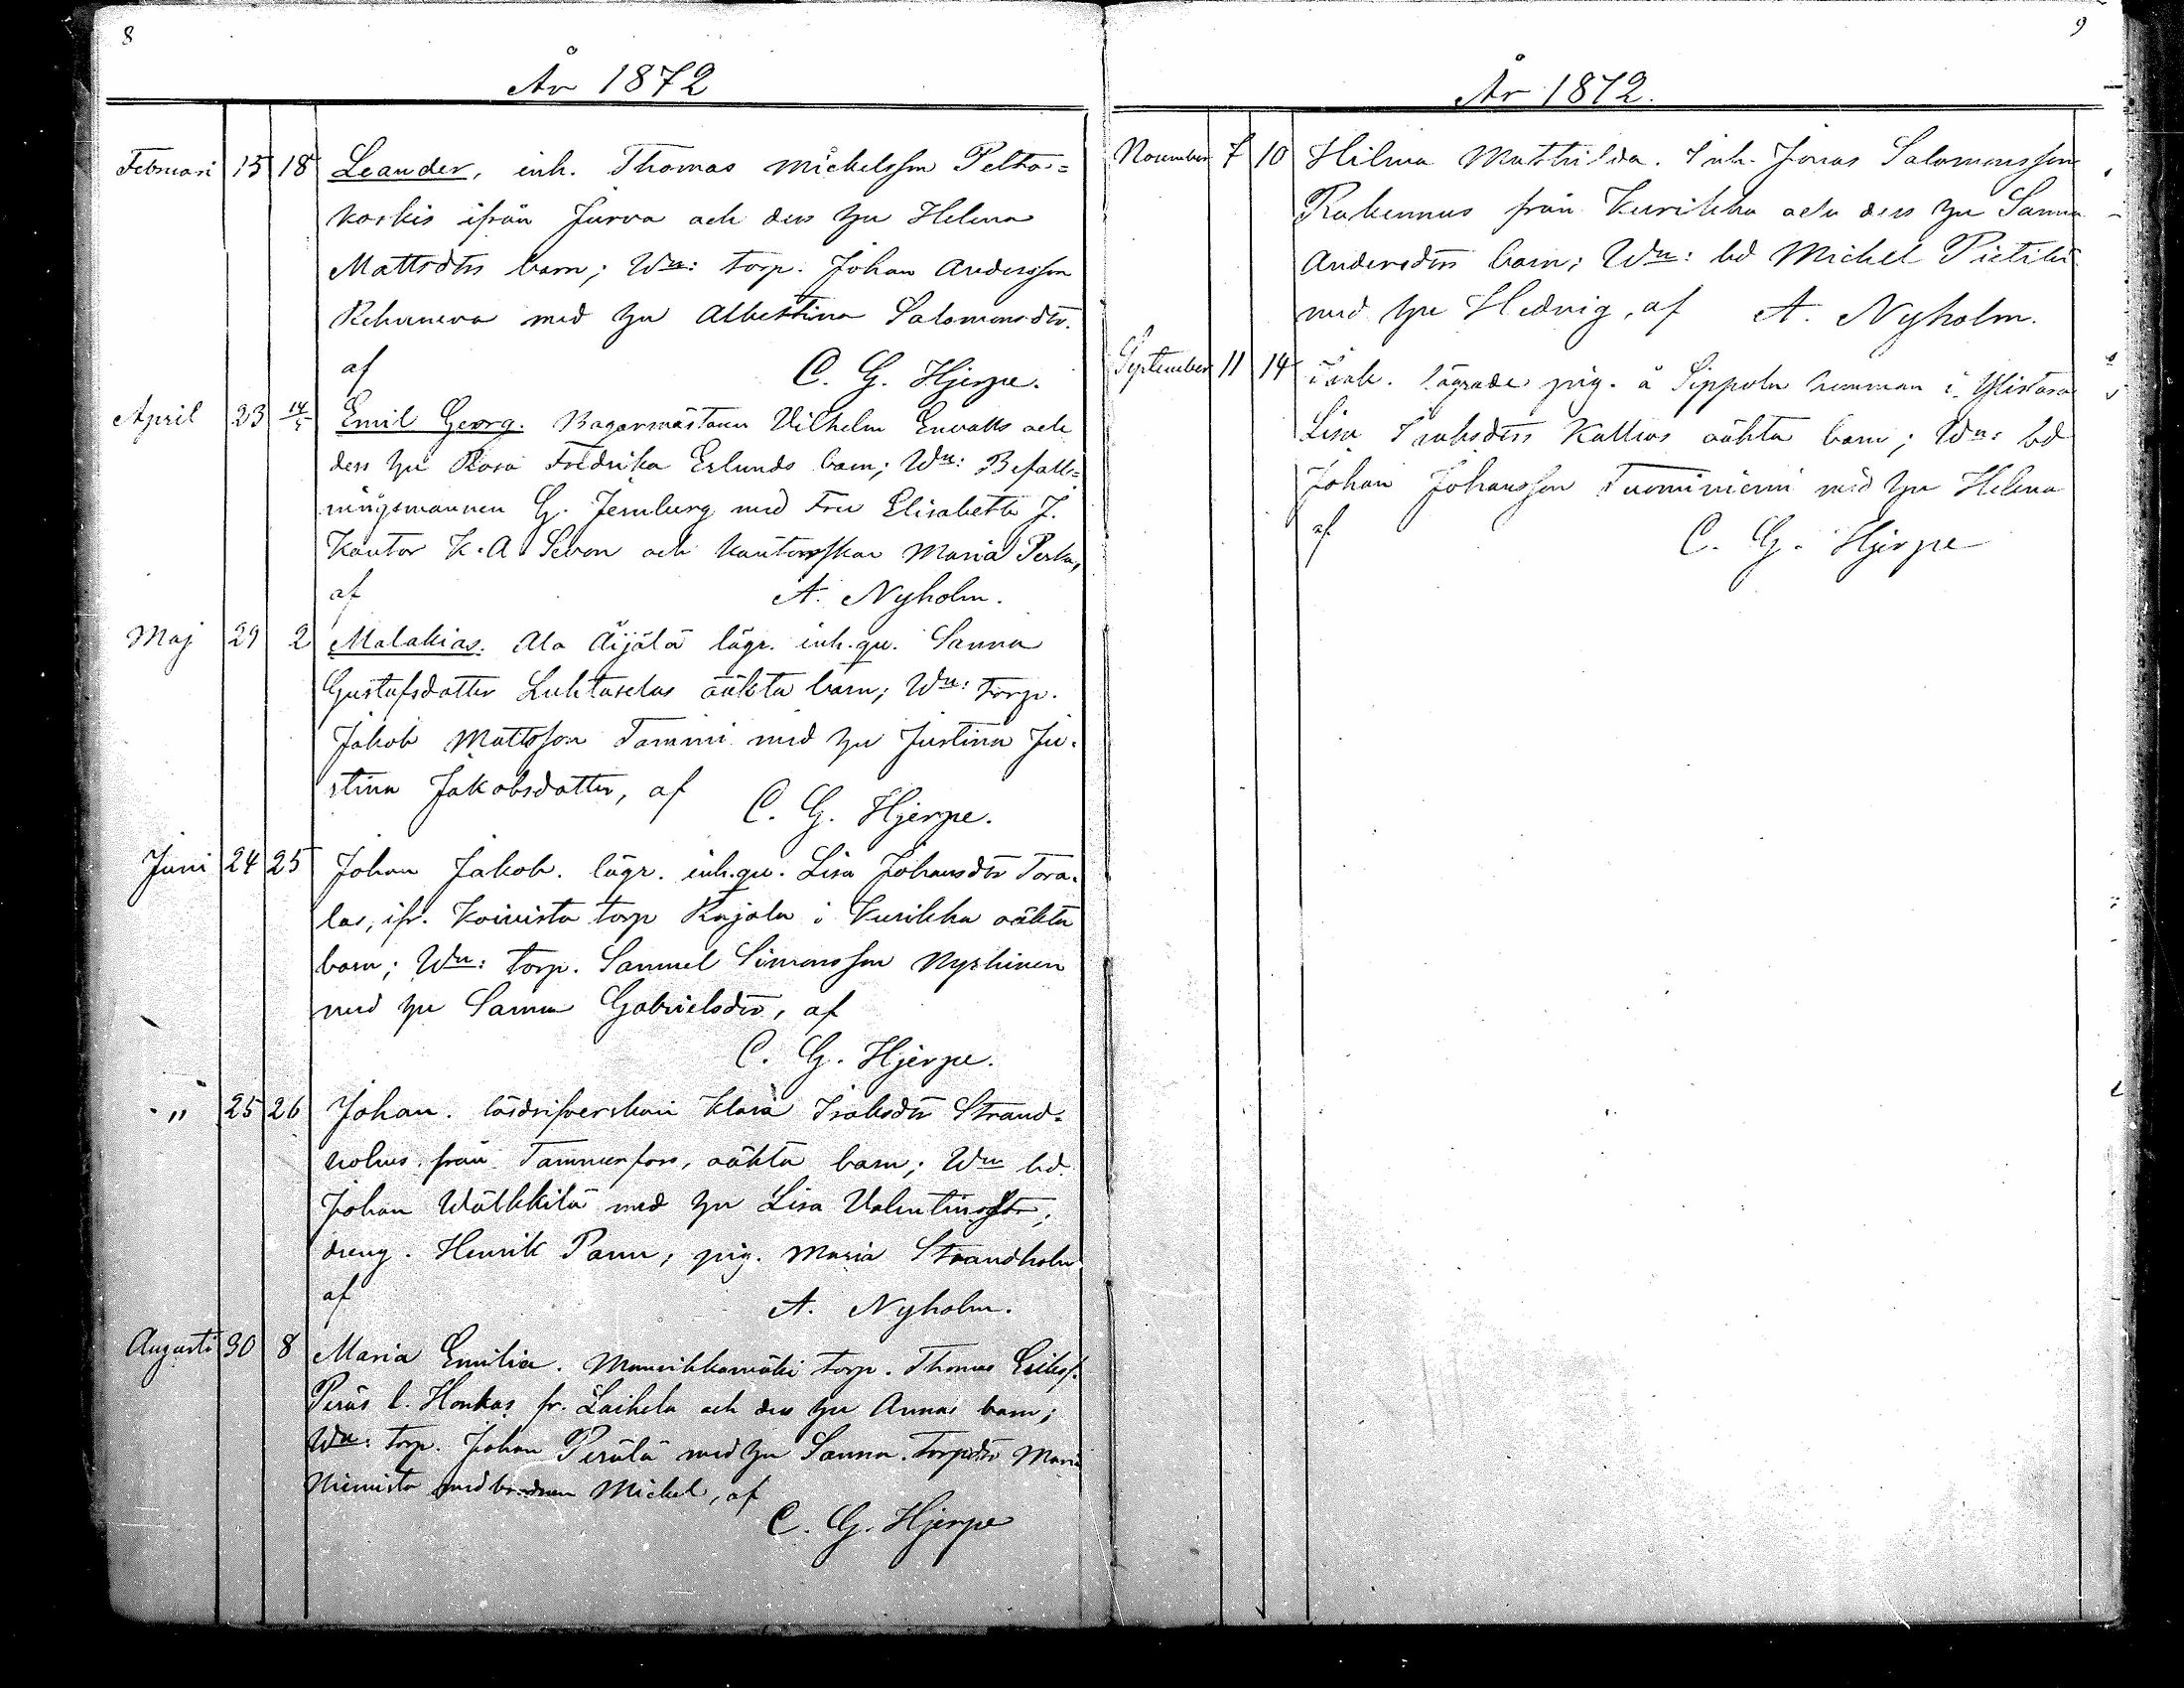 8
År 1872
Februari 15 18 Leander, inh. Thomas Mickelsson Pelto=
koskis ifrån Jurva och dess hu Helena
Mattsdtrs barn; Wn: torp. Johan Andersson
med hu Albertina Salomonsdtr.
af C. G. Hjerpe.
April 23 14/5 Emil Georg. Bagarmästaren Vilhelm Envalls och
dess hu Rosa Fredrika Eslunds barn; Wn: Befall=
ningsmannen G. Jernberg med Fru Elisabeth J.
Kantor K. A. Sevon och kantorskan Maria
af A. Nyholm.
Maj 29 2 Malakias. Ala Äijälä lägr. inh.qv. Sanna
Gustafsdotter Luhtaselas oäkta barn; Wn: Torp.
Jakob Mattsson Tammi med hu Justina Ju-
stina Jakobsdotter, af
C. G. Hjerpe.
Juni 24 25 Johan Jakob. lägr. inh.qv. Lisa Johansdtr Tora-
las, ifr. Koivisto torp Rajala i Kurikka oäkta
barn; Wn: torp. Samuel Simonsson Nyrhinen
med hu Sanna Gabrielsdtr, af
C. G. Hjerpe.
" 25 26 Johan. lösdrifverskan Klara Isaksdtr Strand-
holms från Tammerfors, oäkta barn; Wn bd.
Johan Wälkkilä med hu Lisa Valentinsdtr;
dreng. Henrik Panu, pig. Maria Strandholm
af A. Nyholm.
Augusti 30 8 Maria Emilia. Mansikkamäki torp. Thomas Eriksf.
Peräs l. Honkas fr. Laihela och dess hu Annas barn;
Wn: Torp. Johan Perälä med hu Sanna. Torpdtr Maria
Niemistö med brodren Michel, af
C. G. Hjerpe
9
År 1872.
November 7 10 Hilma Mathilda. Inh. Jonas Salomonsson
Rakennus från Kurikka och dess hu Sanna
Andersdtrs barn; Wn: bd Michel Pietilä
med hu Hedvig, af A. Nyholm.
September 11 14 Isak. lägrade pig. å Sippola hemman i Ylistaro
Lisa Isaksdtrs Kallios oäkta barn; Wn: bd
Johan Johansson Tuominiemi med hu Helena
af C. G. Hjerpe